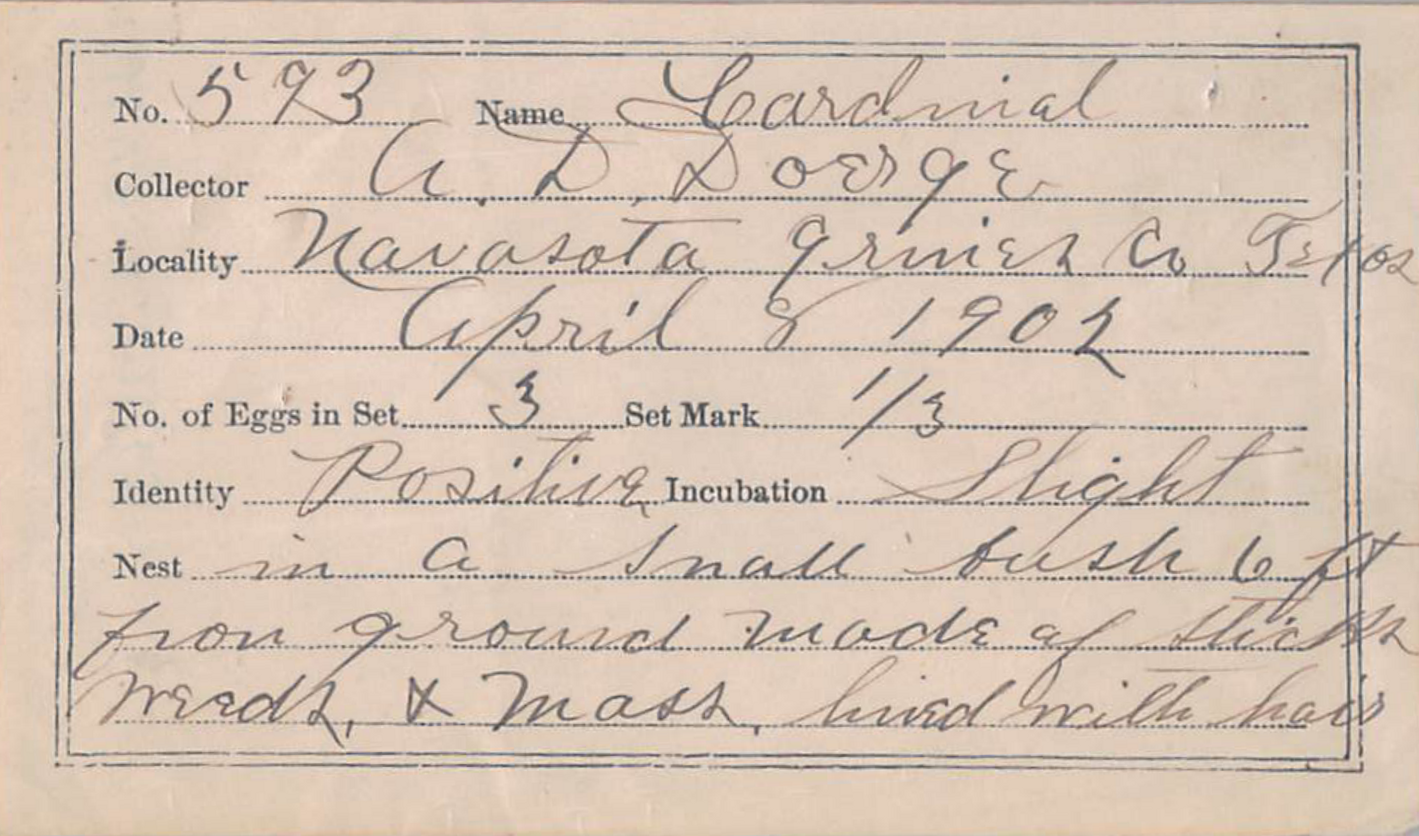 No. 593 Name Cardinal
Collector A. D. Doerge
Locality Navasota Grimes Co Texas
Date April 8 1902
No. of Eggs in Set 3 Set Mark 1/3
Identity Positive Incubation Slight
Nest in a small bush 6 ft
from ground made of sticks
weeds, & moss, lined with hair